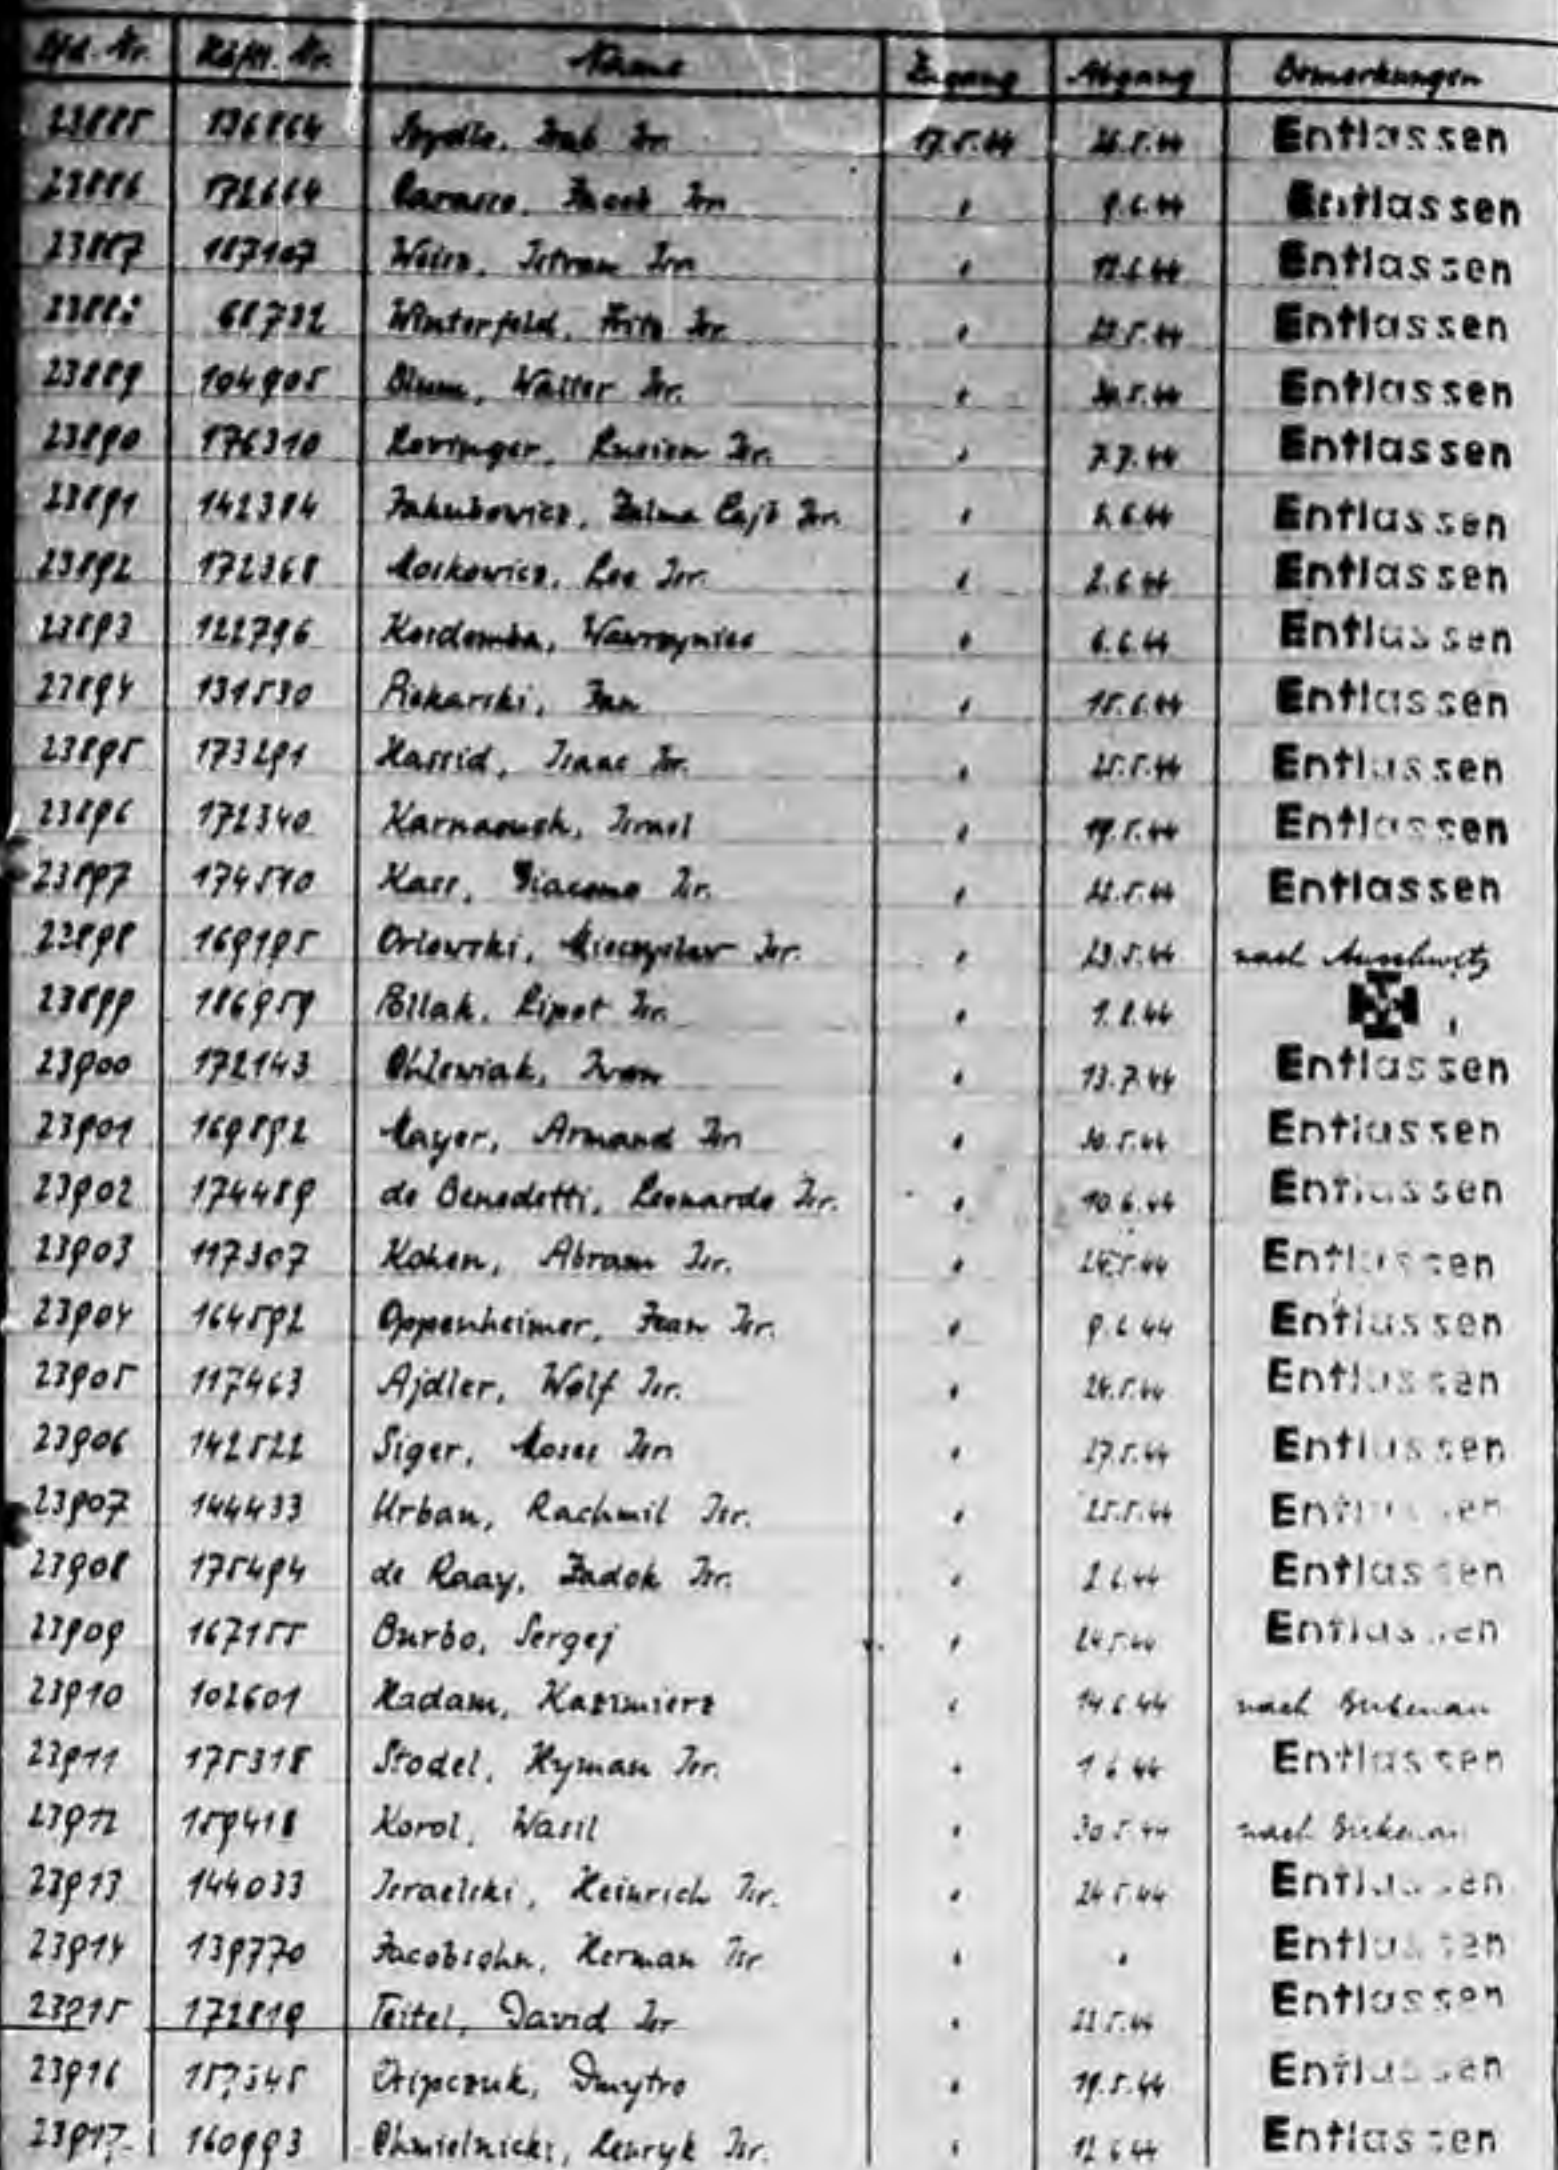 Lfd. Nr. Häftl. Nr. Name Zugang Abgang Bemerkungen
23885 136864 Isr. 17.5.44 26.5.44 Entlassen
23886 172664 Isr. " 9.6.44 Entlassen
23887 187107 Isr. " 12.6.44 Entlassen
23888 68732 Winterfeld, Fritz Isr. " 23.5.44 Entlassen
23889 104905 Blum, Walter Isr. " 30.5.44 Entlassen
23890 176310 Lovinger, Lucien Isr. " 7.7.44 Entlassen
23891 142384 Jakubowicz, Lajb Isr. " 6.44 Entlassen
23892 172368 Moskowicz, Leo Isr. " 2.6.44 Entlassen
23893 122796 Wawrzyniec " 6.6.44 Entlassen
23894 131530 Piekarski, Jan " 15.6.44 Entlassen
23895 173291 Hassid, Isaac Isr. " 25.5.44 Entlassen
23896 172340 Karnaouch, Israel " 19.5.44 Entlassen
23897 174510 Kass, Giacomo Isr. " 22.5.44 Entlassen
23898 169195 Orlowski, Mieczyslaw Isr. " 23.5.44 nach Auschwitz
23899 186959 Pollak, Lipot Isr. " 1.8.44
23900 172143 Chlewiak, Iwan " 13.7.44 Entlassen
23901 169892 Mayer, Armand Isr. " 30.5.44 Entlassen
23902 174489 de Benedetti, Leonardo Isr. " 10.6.44 Entlassen
23903 117307 Kohen, Abram Isr. " 24.5.44 Entlassen
23904 164592 Oppenheimer, Jean Isr. " 9.6.44 Entlassen
23905 117463 Ajdler, Wolf Isr. " 24.5.44 Entlassen
23906 142522 Siger, Moses Isr. " 27.5.44 Entlassen
23907 144433 Urban, Rachmil Isr. " 25.5.44 Entlassen
23908 175494 de Raay, Zadok Isr. " 2.6.44 Entlassen
23909 167155 Burbo, Sergej " 24.5.44 Entlassen
23910 102601 Hadam, Kazimierz " 14.6.44 nach Birkenau
23911 175318 Stodel, Hyman Isr. " 1.6.44 Entlassen
23912 159418 Korol, Wasil " 30.5.44 nach Birkenau
23913 144033 Israelski, Heinrich Isr. " 24.5.44 Entlassen
23914 139770 Jacobsohn, Herman Isr " " Entlassen
23915 172819 Teitel, David Isr " 22.5.44 Entlassen
23916 157345 Dmytro " 19.5.44 Entlassen
23917 160993 Chmielnicki, Henryk Isr. " 12.6.44 Entlassen